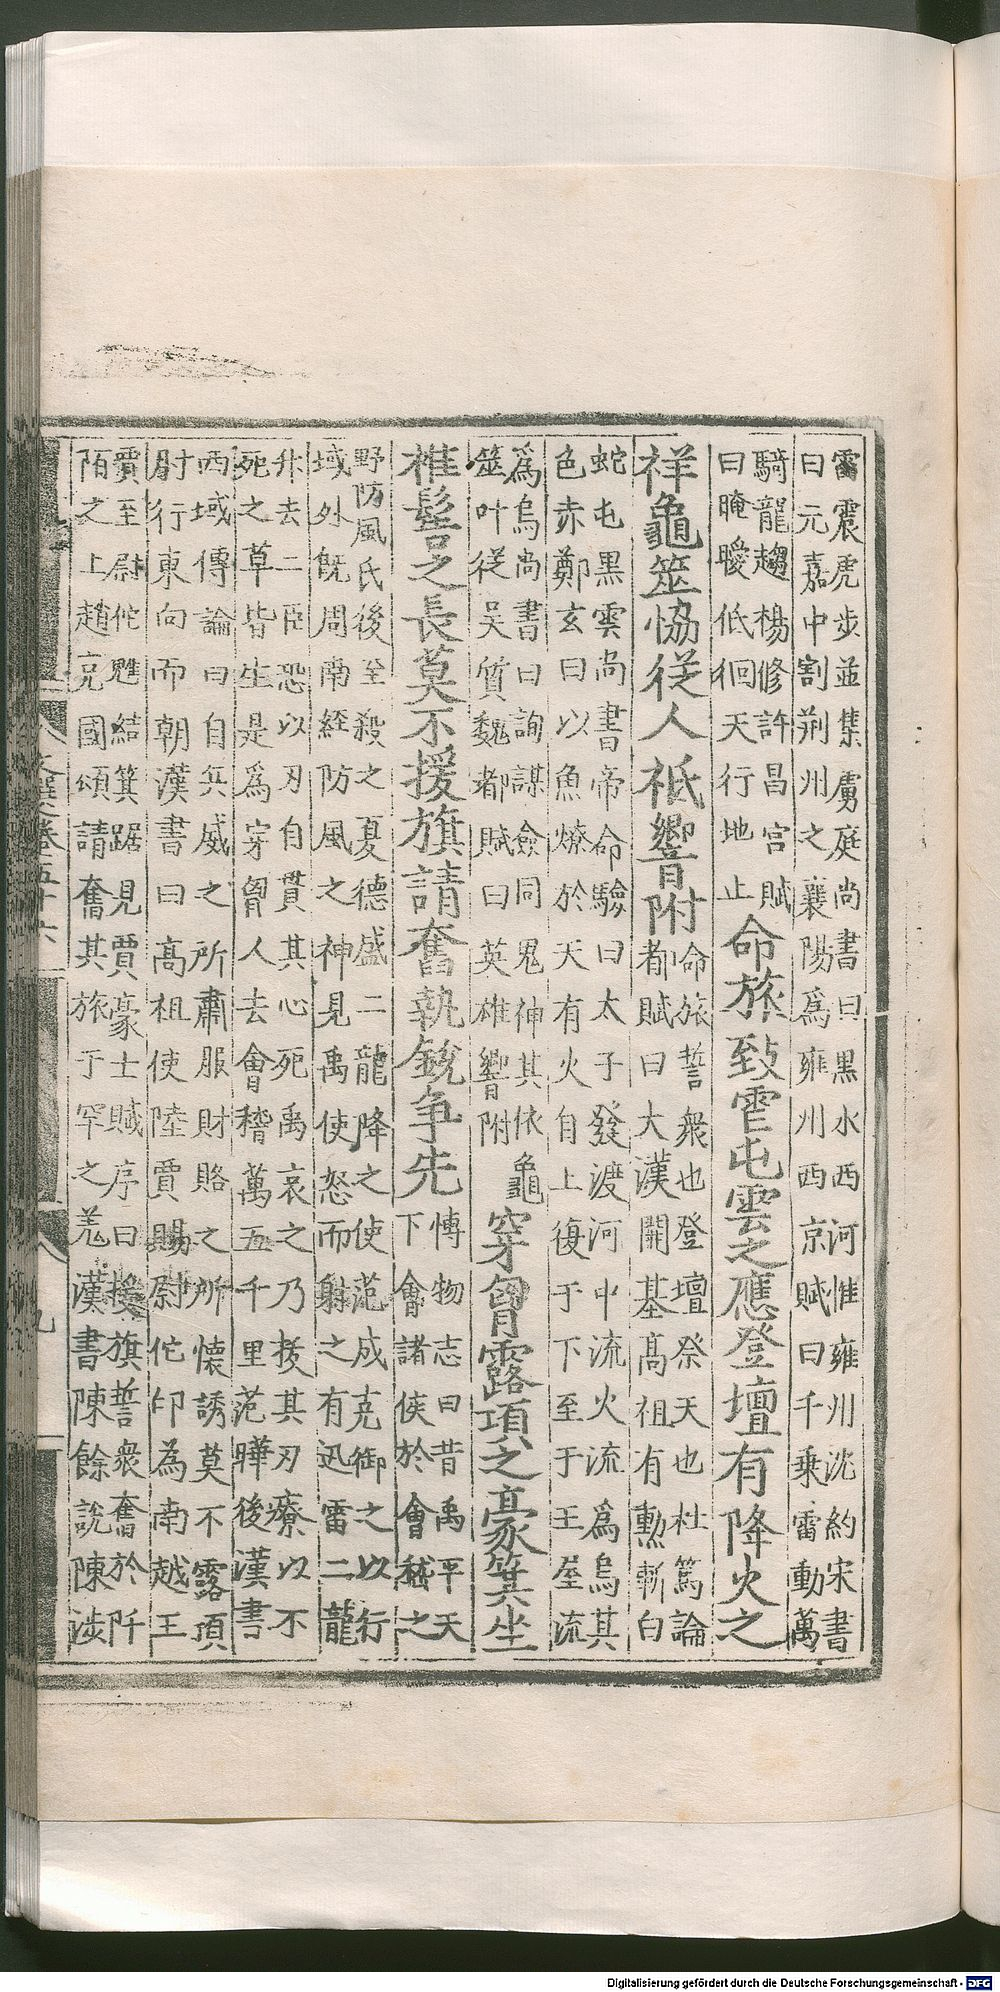 雷震虎步並集虜庭尚書曰黑水西河惟雍州沈約宋書
曰元嘉中割荆州之襄陽爲雍州西京賦曰千乗雷動萬
騎龍趨楊修許昌宫賦
曰晻曖低徊天行地止
命旅致屯雲之應登壇有降火之
祥龜筮恊從人祇響附
命旅誓衆也登壇祭天也杜篤論
都賦曰大漢開基髙祖有勲斬白
蛇屯黑雲尚書帝命驗曰太子發渡河中流火流爲烏其
色赤鄭玄曰以魚燎於天有火自上復于下至于王屋流
爲烏尚書曰詢謀僉同鬼神其依龜
筮叶從吴質魏都賦曰英雄響附
穿胷露頂之豪箕坐
椎髻之長莫不援旗請奮執銳争先
博物志曰昔禹平天
下會諸侯於會嵇之
野防風氏後至殺之夏德盛二龍降之使范成克御之以行
域外旣周南經防風之神見禹使怒而射之有迅雷二龍
升去二臣恐以刃自貫其心死禹哀之乃拔其刃療以不
死之草皆生是爲穿胷人去會稽萬五千里范曄後漢書
西域傳論曰自兵威之所肅服財賂之所懷誘莫不露頂
肘行東向而朝漢書曰高祖使陸賈賜尉佗印為南越王
賈至尉佗魋結箕踞見賈豪士賦序曰援旗誓衆奮於阡
陌之上趙充國頌請奮其旅于罕之羌漢書陳餘說陳涉
文選卷五十六
九
Digitalisierung gefördert durch die Deutsche Forschungsgemeinschaft - DFG